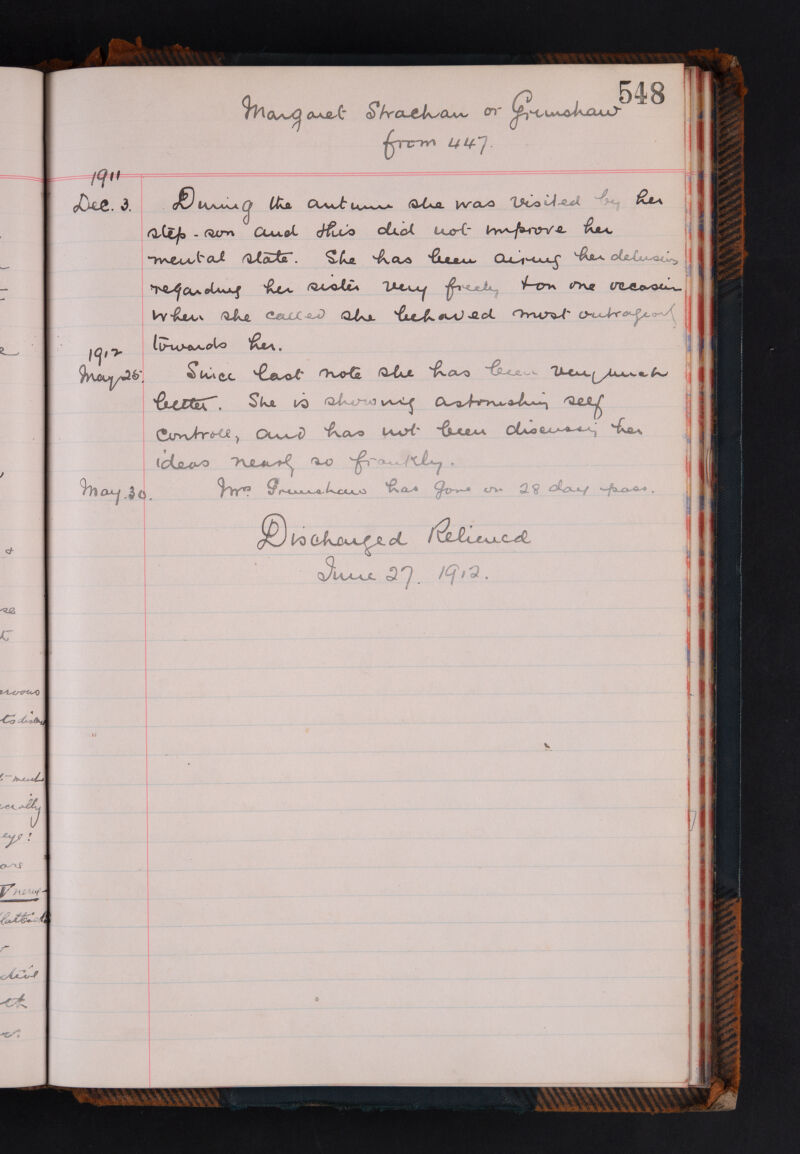 548
Margaret Strachan or Grimshaw
from 447.
1911
Dec. 3. During the autumn she was visited by her
step-son and this did not improve her
mental state. She has been airing her delusions
regarding her sister very freely, & on one occasion
when she called she behaved most outrageously
towards her.
1912
May 25. Since last note she has been very much
better. She is showing astonishing self
controll, and has not been discussing her
ideas nearly so frankly.
May 30. Mrs Grimshaw has gone on 28 day pass.
Discharged Relieved
June 27. 1912.